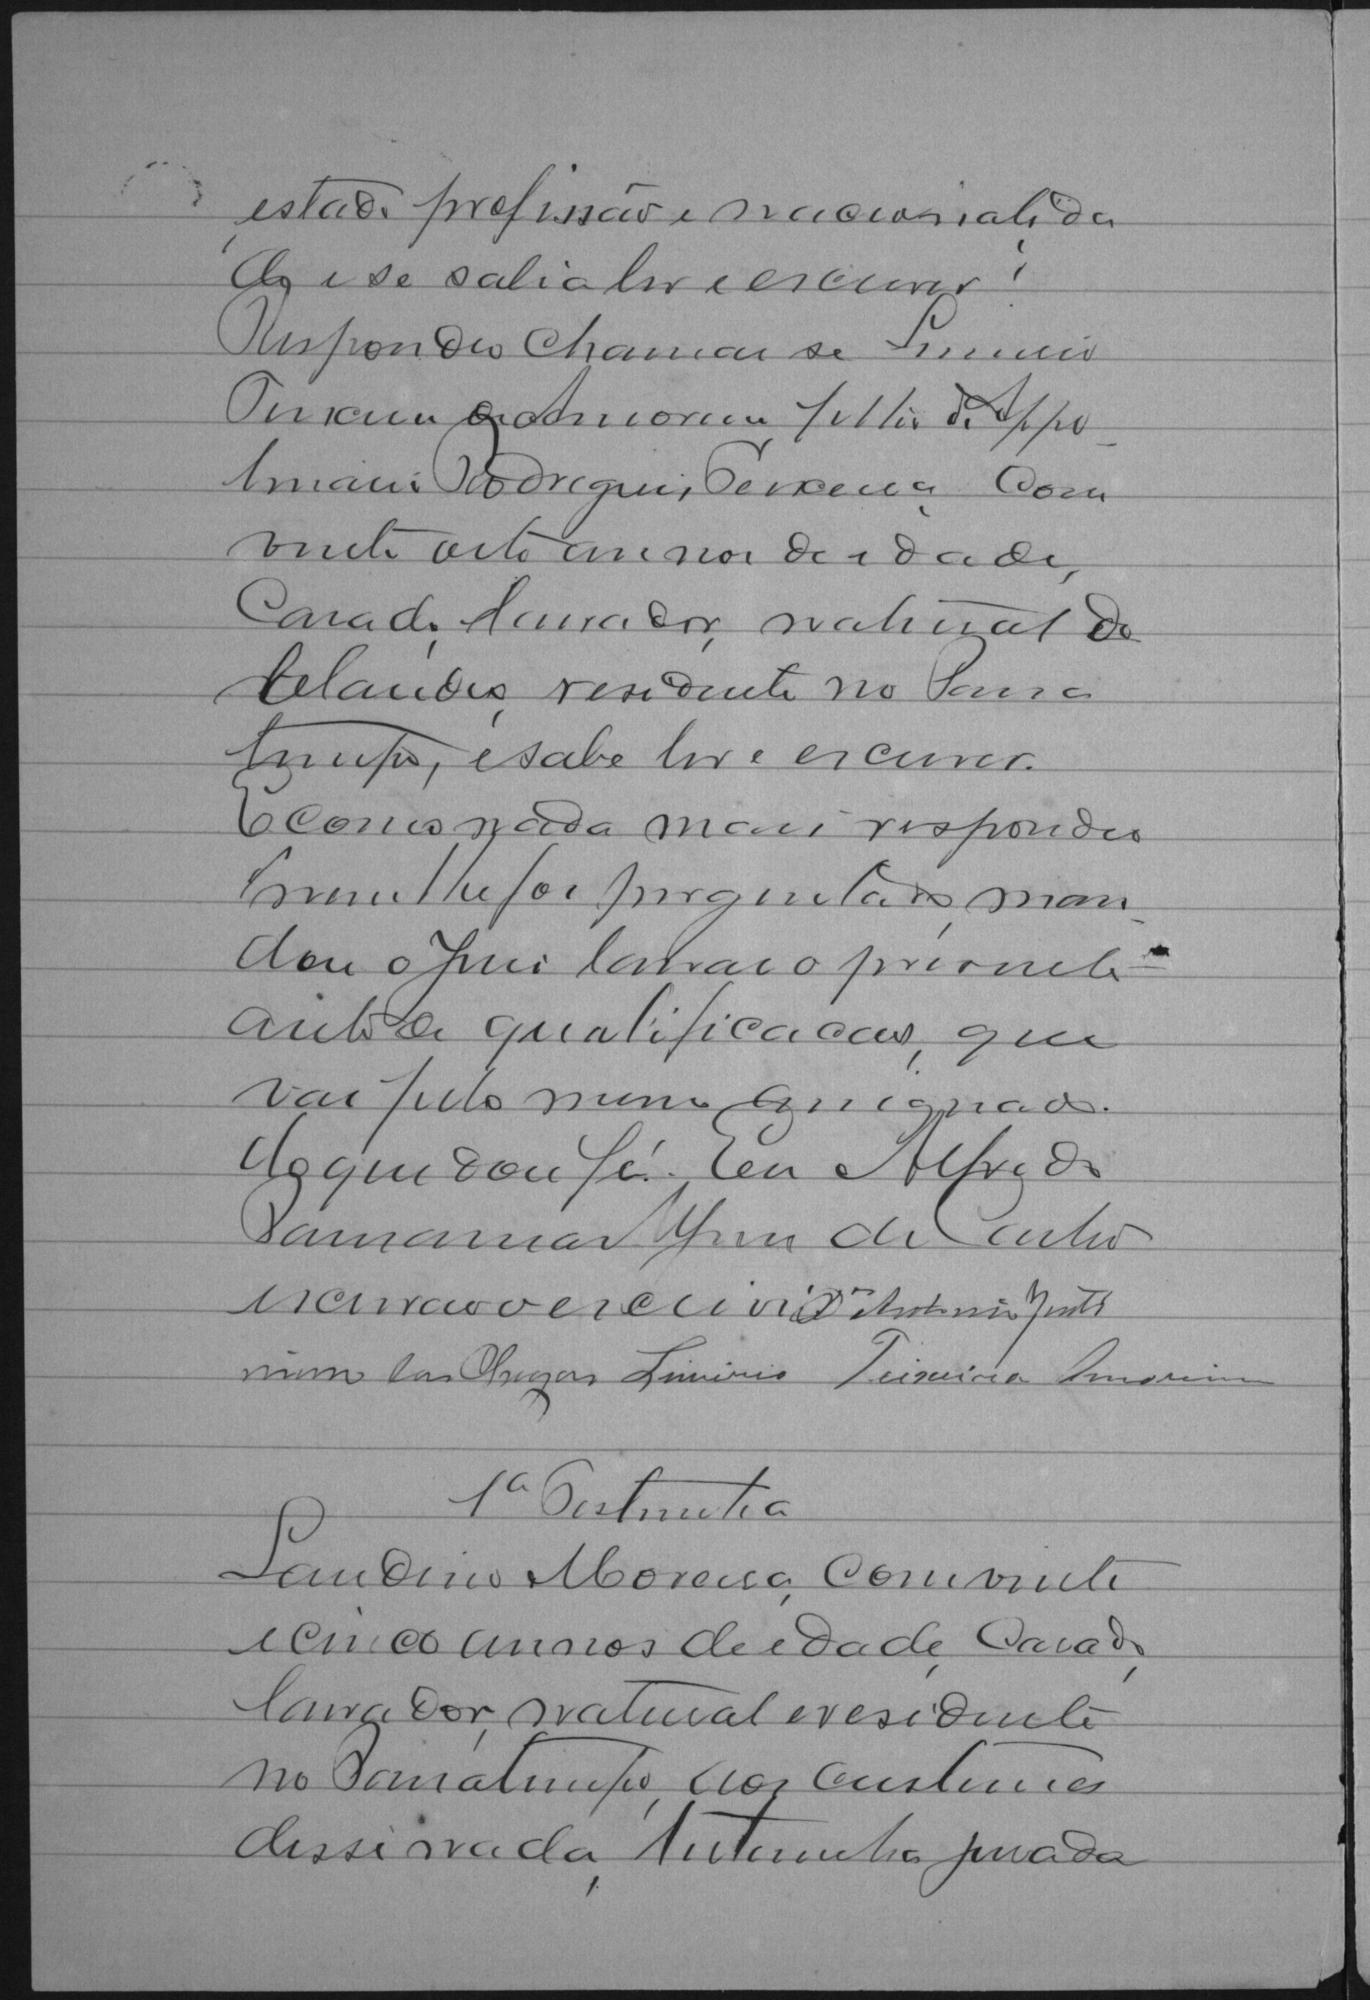 estado profissão e nacionalida
de e se sabia ler e escrever?
Respondeo chamar se Limirio
Teixeira de Amorim filho de Appo
Rodrigues Teixeira, com
vinte oito annos de edade,
Casado, lavrador, natural do
residente no Parna
e sabe ler e escrever.
E como nada mais respondeo
nem lhe foi perguntado, man
dou o Juiz lavrar o presente
auto de qualificacao, que
vae pelo mesmo assignado.
do que dou fé. Eu Alfredo
de Castro
escrivao o escrevi Antonio
das Chagas Limirio Teixeira Amorim
1ª Testemunha
Laudino Moreira, com vinte
e cinco annos de edade, Casado,
lavrador, natural e residente
no aos custumes
disse nada, testemunha jurada